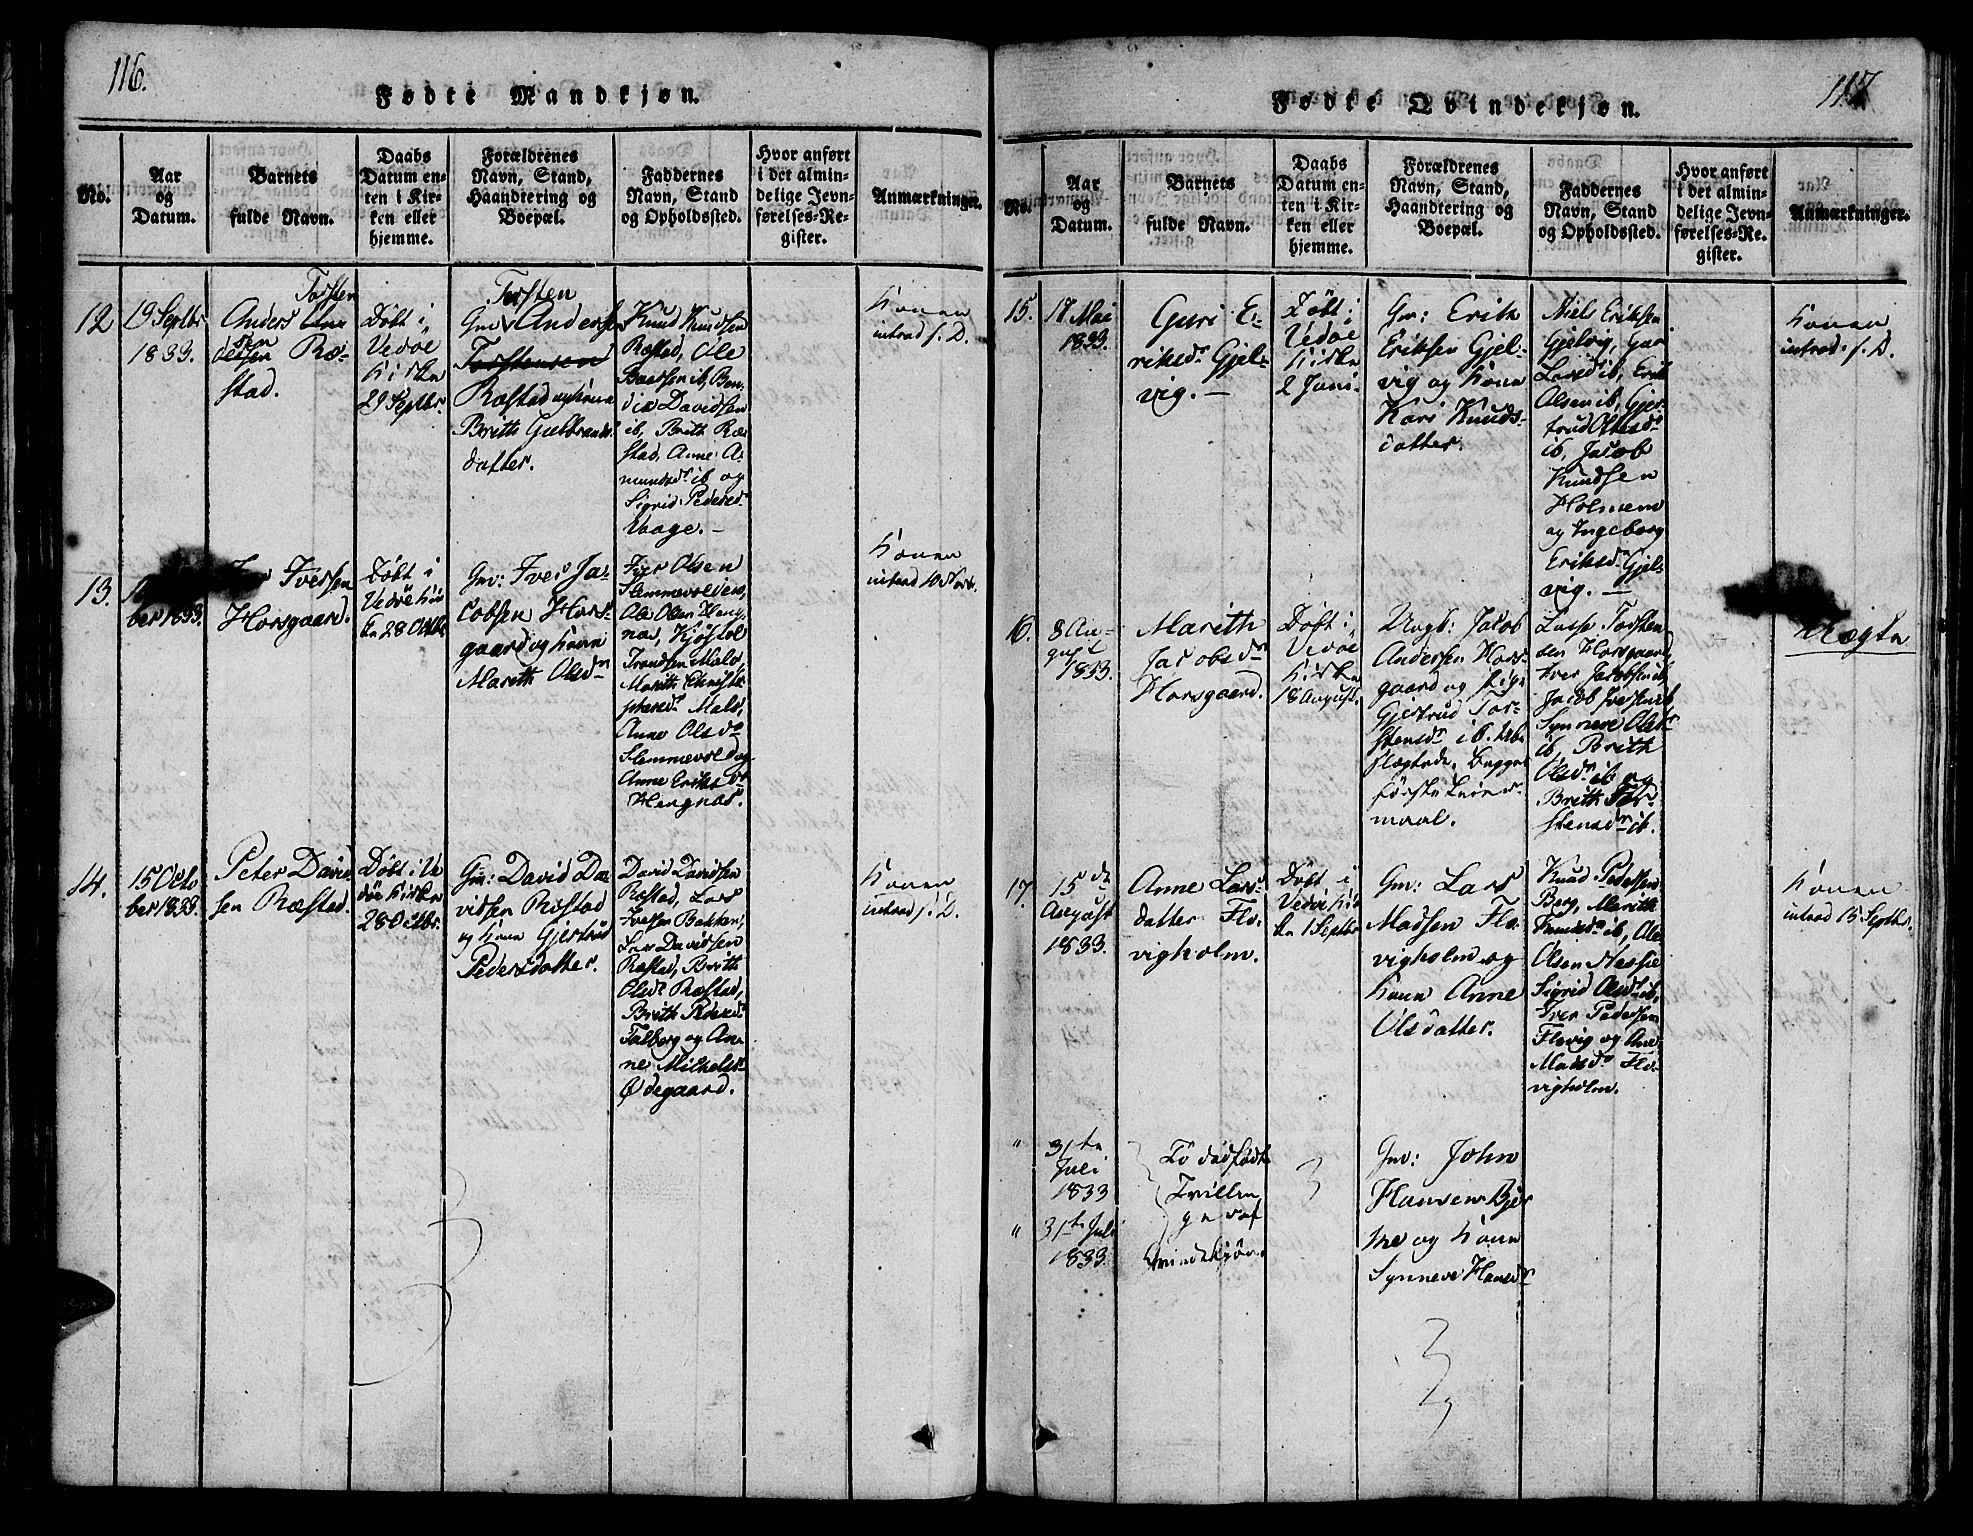 116.
Fødte Mandkjøn.
No.
Aar
og
Datum.
Barnets
fulde Navn.
Daabs
Datum en-
ten i Kir-
ken eller
hjemme.
Forældrenes
Navn, Stand,
Haandtering og
Boepæl.
Faddernes
Navn, Stand
og Opholdssted.
Hvor anført
i det almin-
delige Jevn-
førelses-Re-
gister.
Anmærkninger.
12
19 Septbr
1833.
Torsten
Anders
Ræ-
stad.
Døbt i
Vedøe
Kirke
29 Septbr.
Torsten
Gm: Andersen
Torstensen
Ræstad og Kone
Brith Gulbrands
datter.
Knud Knudsen
Ræstad, Ole
Baarsen ib, Ben-
dix Davidsen
ib, Brith Ræ-
stad, Anne A-
mundsdr ib og
Sigrid Pedersdr
Vaage.
Konen
introd s. D.
13.
ber 1833.
Iversen
Horsgaard.
Døbt i
Vedøe Kir
ke 28 Octbr
Gm: Iver Ja-
cobsen Hors-
gaard og Kone
Marith Olsdr
Iver Olsen
Slemmevolden,
Ole Olsen Heng-
næs, Kjøstol
Trondsen Male,
Marith Christo-
phersdr Male,
Anne Olsdr
Slemmevold og
Anne Eriksdr
Hengnæs.
Konen
introd 10 Novbr.
14.
15 Octo
ber 1833.
Peter David
sen Ræstad.
Døbt i Ve-
døe Kirke
28 Octbr.
Gm: David Da-
vidsen Ræstad
og Kone Gjertrud
Pedersdatter.
David Davidsen
Ræstad, Lars
Iversen Bakken,
Lars Davidsen
Ræstad, Brith
Olsdr Ræstad,
Brith Pedersdr
Talberg og An-
ne Michelsdr
Ødegaard.
Konen
introd s. D.
117
Fødte Qvindekjøn.
No.
Aar
og
Datum.
Barnets
fulde Navn.
Daabs
Datum en-
ten i Kir-
ken eller
hjemme.
Forældrenes
Navn, Stand,
Haandtering og
Boepæl.
Faddernes
Navn, Stand
og Opholdssted.
Hvor anført
i det almin-
delige Jevn-
førelses-Re-
gister.
Anmærkninger.
15.
18 Mai
1833.
Guri E-
riksdr Gjel-
vig. —
Døbt i
Vedøe
Kirke
2 Juni.
Gm: Erik
Eriksen Gjel-
vig og Kone
Kari Knuds-
datter.
Niels Eriksen
Gjelvig, Guri
Larsdr ib, Erik
Olsen ib, Gjer-
trud Olsdr
ib, Jacob
Knudsen
Holmem
og Ingeborg
Eriksdr Gjel-
vig. —
Konen
introd. s. D.
16.
8 Au-
gust
1833.
Marith
Jacobsdr
Horsgaard.
Døbt i
Vedøe
Kirke
18 August.
Ungk: Jacob
Andersen Hors-
gaard og Pige
Gjertrud Tor-
stensdr ib. Ube-
slægtede. Begges
første Leier-
maal.
Lasse Torsten
sen Horsgaard,
Iver Jacobsen ib,
Jacob Iversen ib,
Synneve Olsdr
ib, Brith
Olsdr ib og
Brith Tor-
stensdr ib.
Uægte
17.
15 de
August
1833.
Anne Lars-
datter Flo-
vigholm.
Døbt i
Vedøe Kir
ke 1 Septbr
Gm: Lars
Madsen Flo-
vigholm og
Kone Anne
Olsdatter.
Knud Pedersen
Berg, Marith
Knudsdr ib, Ole
Olsen Nessie
Sigrid Olsdr ib,
Iver Pedersen
Flovig og Ane
Madsdr Flo-
vigholm.
Konen
introd 15 Septbr.
"
31te
Juli
1833
"
31te Juli
1833.
To dødfødte
Tvillin
ger af
Qvindekjøn.
Gm: John
Hansen Bjer
ke og Kone
Synneve Hansdr